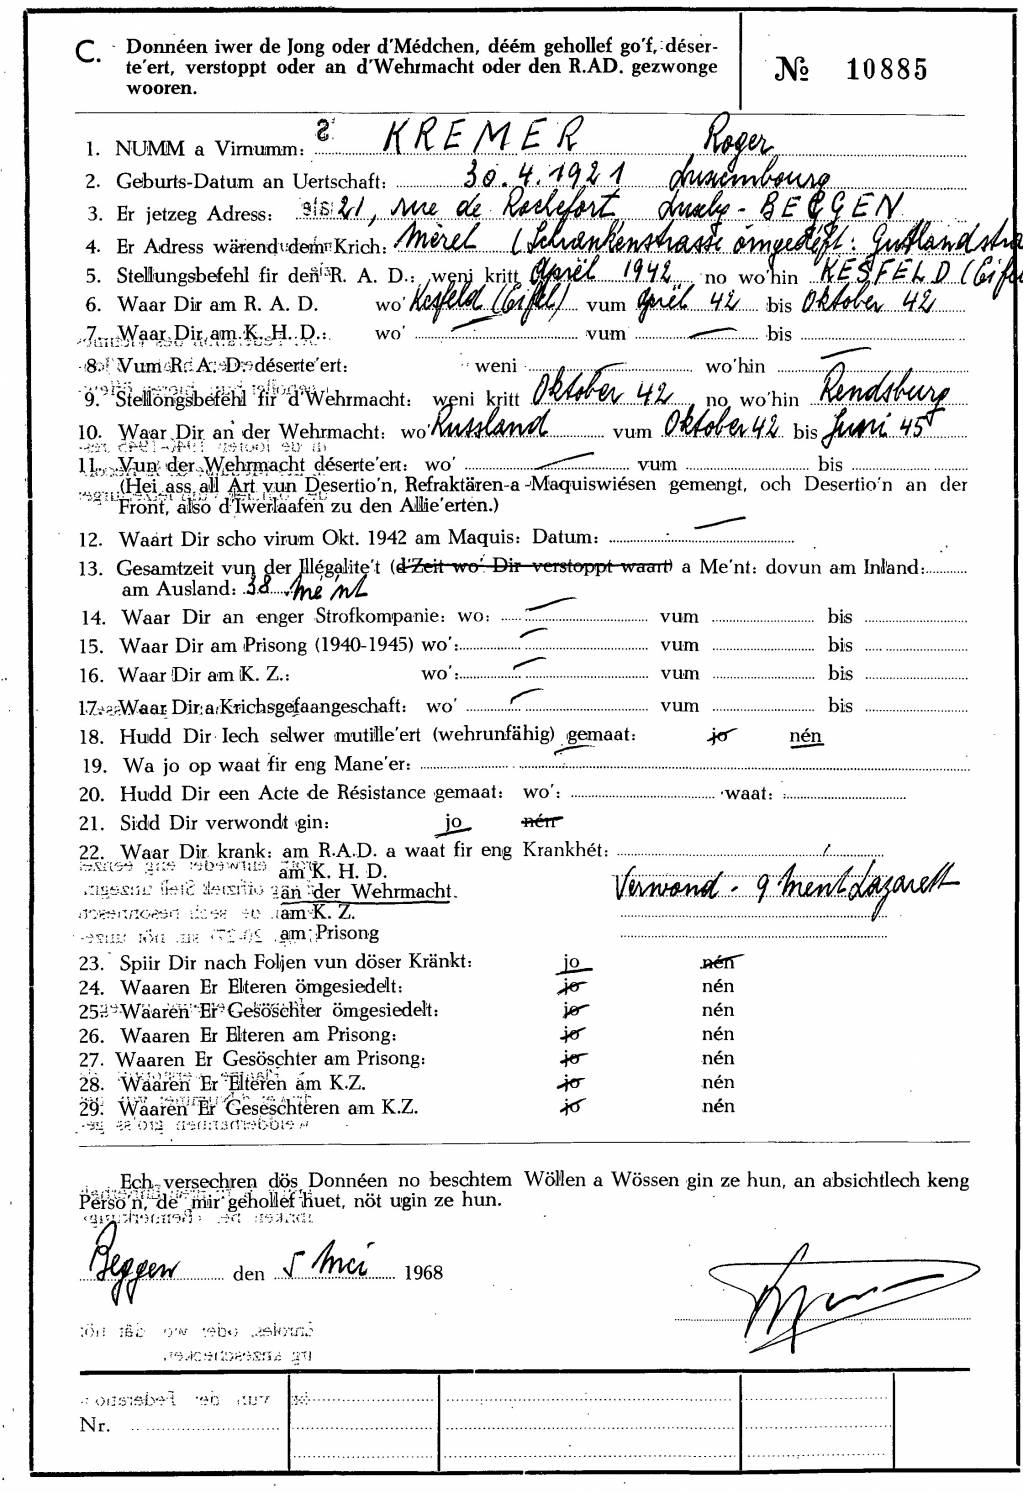 C. Donnéen iwer de Jong oder d'Médchen, déém gehollef go'f, déser-
te'ert, verstoppt oder an d'Wehrmacht oder den R.AD. gezwonge
wooren.
№ 10885
1. NUMM a Virnumm: KREMER Roger
2. Geburts-Datum an Uertschaft: 30.4.1921 Luxembourg
3. Er jetzeg Adress: 21, rue de Rochefort Luxbg - BEGGEN
4. Er Adress wärend dem Krich: Merel (Schrankenstrasse ömgedeft: Gutlandstra
5. Stellungsbefehl fir den R. A. D.: weni kritt Aprël 1942 no wo'hin KESFELD (Eifel
6. Waar Dir am R. A. D. wo' Kesfeld (Eifel) vum Aprël 42 bis Oktober 42
7. Waar Dir am K. H. D.: wo' — vum — bis
8. Vum R. A. D. déserte'ert: weni — wo'hin —
9. Stellongsbefehl fir d'Wehrmacht: weni kritt Oktober 42 no wo'hin Rendsburg
10. Waar Dir an der Wehrmacht: wo' Russland vum Oktober 42 bis Juni 45
11. Vun der Wehrmacht déserte'ert: wo' — vum bis
(Hei ass all Art vun Desertio'n, Refraktären-a -Maquiswiésen gemengt, och Desertio'n an der
Front, also d'Iwerlaafen zu den Allie'erten.)
12. Waart Dir scho virum Okt. 1942 am Maquis: Datum: —
13. Gesamtzeit vun der Illégalite't (d'Zeit wo' Dir verstoppt waart) a Me'nt: dovun am Inland:
am Ausland: 38 Mé'nt
14. Waar Dir an enger Strofkompanie: wo: — vum bis
15. Waar Dir am Prisong (1940-1945) wo': — vum bis
16. Waar Dir am K. Z.: wo': — vum bis
17. Waar Dir a Krichsgefaangeschaft: wo' — vum bis
18. Hudd Dir Iech selwer mutille'ert (wehrunfähig) gemaat: jo nén
19. Wa jo op waat fir eng Mane'er: —
20. Hudd Dir een Acte de Résistance gemaat: wo': waat:
21. Sidd Dir verwondt gin: jo nén
22. Waar Dir krank: am R.A.D. a waat fir eng Krankhét:
am K. H. D.
än der Wehrmacht. Verwond - 9 Ment Lazarett
am K. Z.
am Prisong
23. Spiir Dir nach Foljen vun döser Kränkt: jo nén
24. Waaren Er Elteren ömgesiedelt: jo nén
25. Waaren Er Gesöschter ömgesiedelt: jo nén
26. Waaren Er Elteren am Prisong: jo nén
27. Waaren Er Gesöschter am Prisong: jo nén
28. Waaren Er Elteren am K.Z. jo nén
29. Waaren Er Geseschteren am K.Z. jo nén
Ech versechren dös Donnéen no beschtem Wöllen a Wössen gin ze hun, an absichtlech keng
Perso'n, de' mir gehollef huet, nöt ugin ze hun.
Beggen den 5 Mei 1968
Nr.